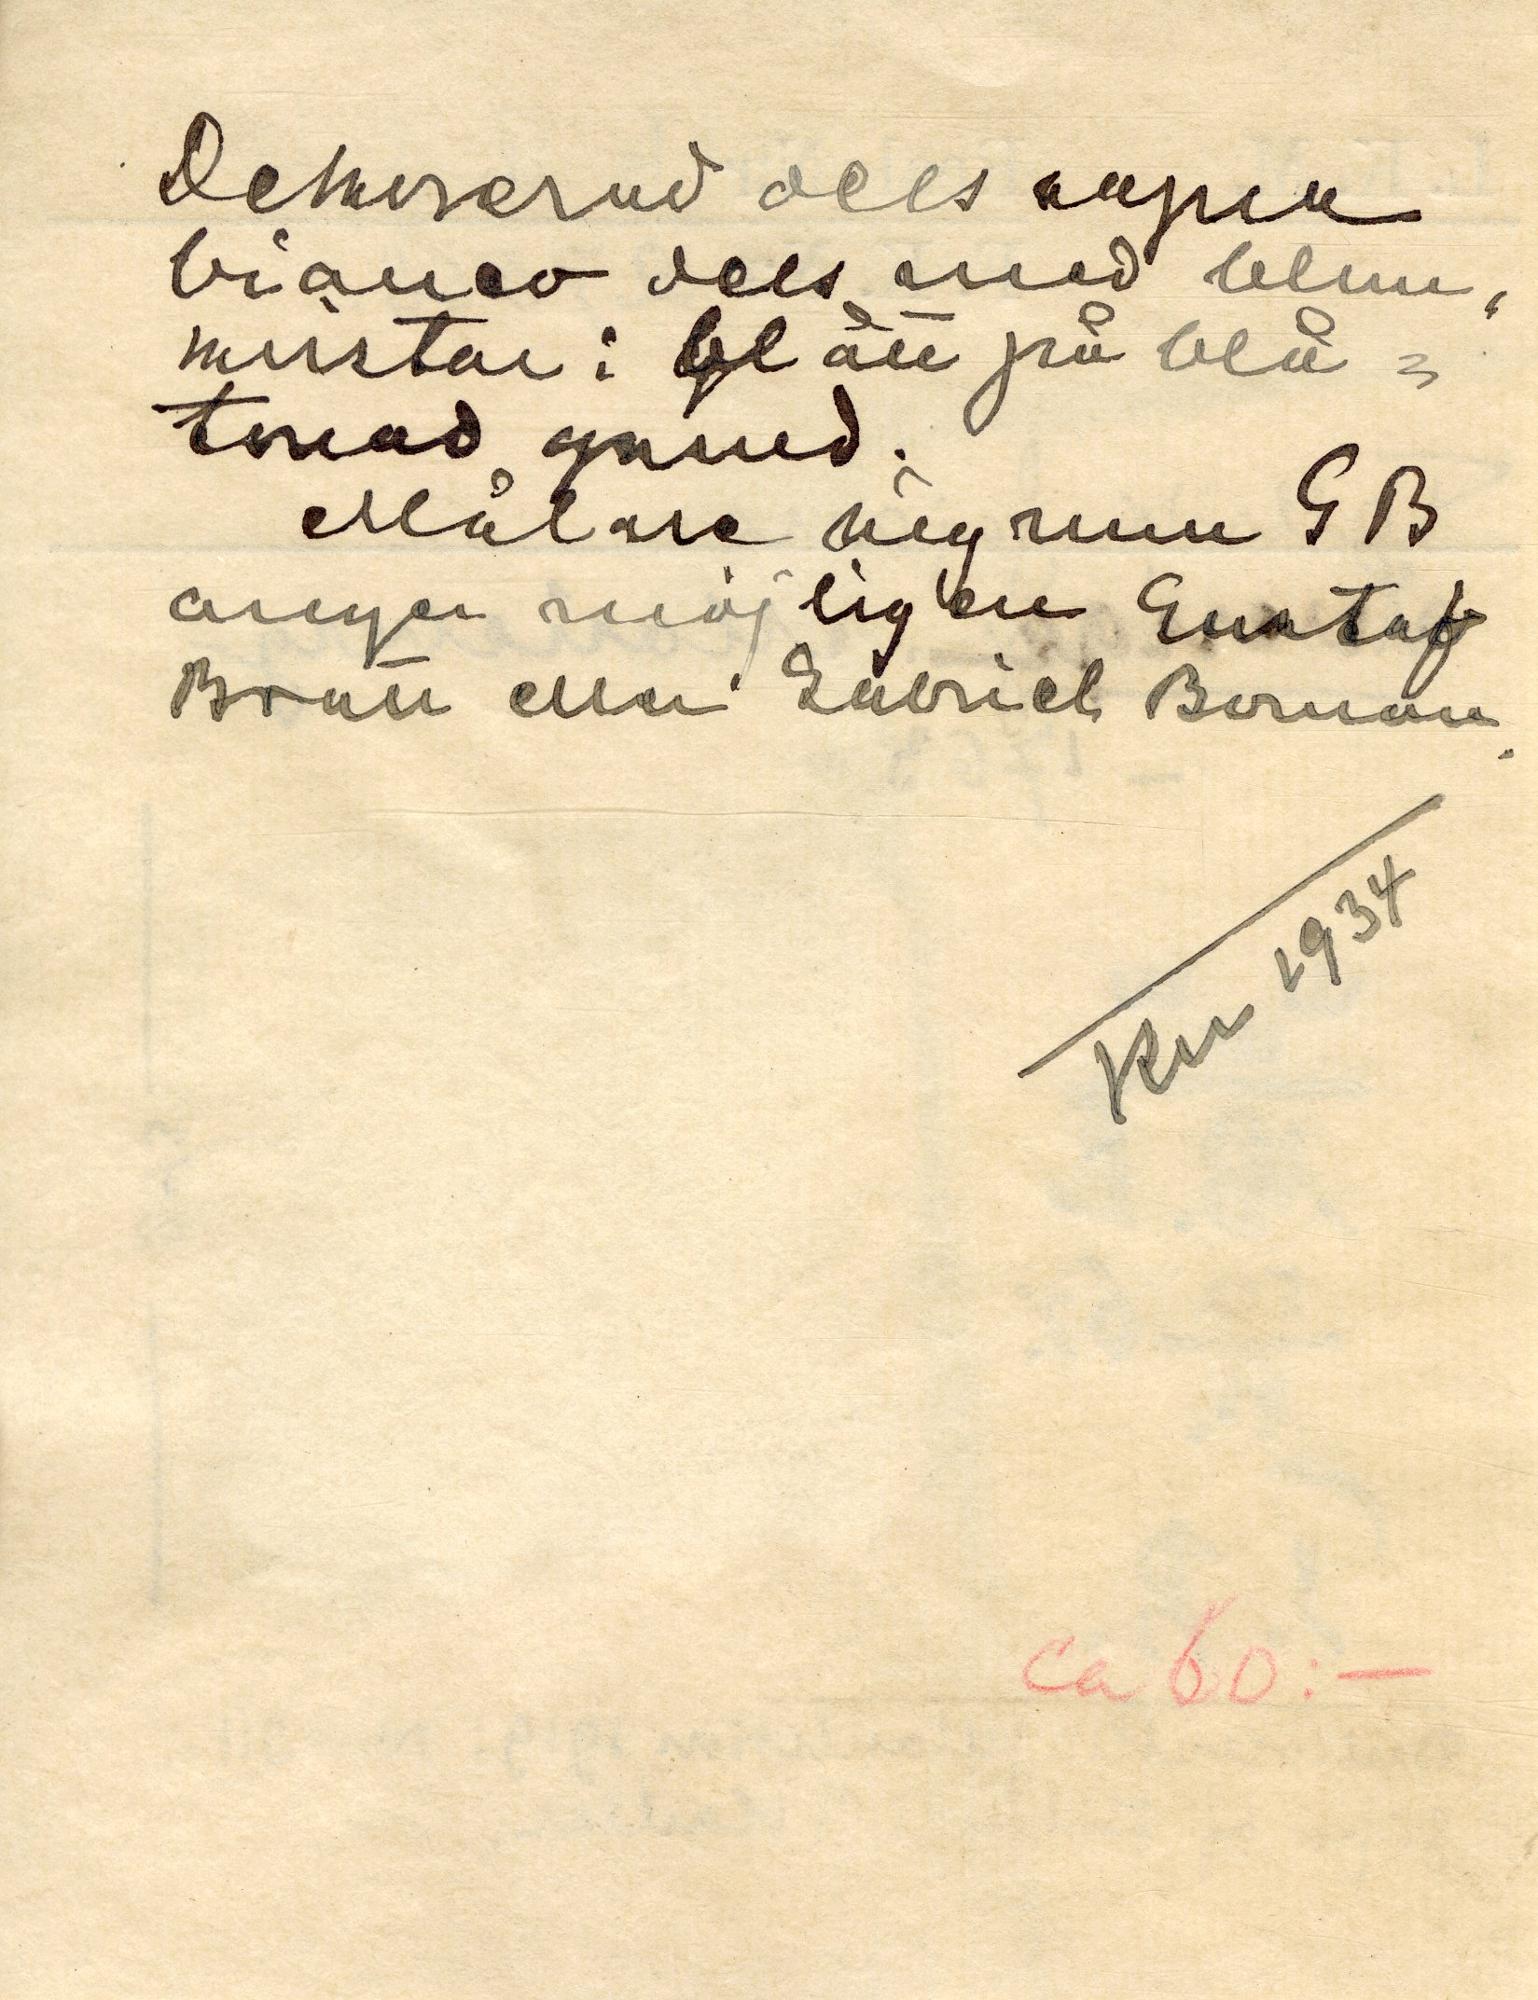 Dekorerad dels sopra
bianco dels med blom,
mirstar i blått på blå =
tonad grund.
Målare signum GB
anger möjligen Gustaf
Bratt eller Gabriel Borman.
Kw 1934
ca 60:—